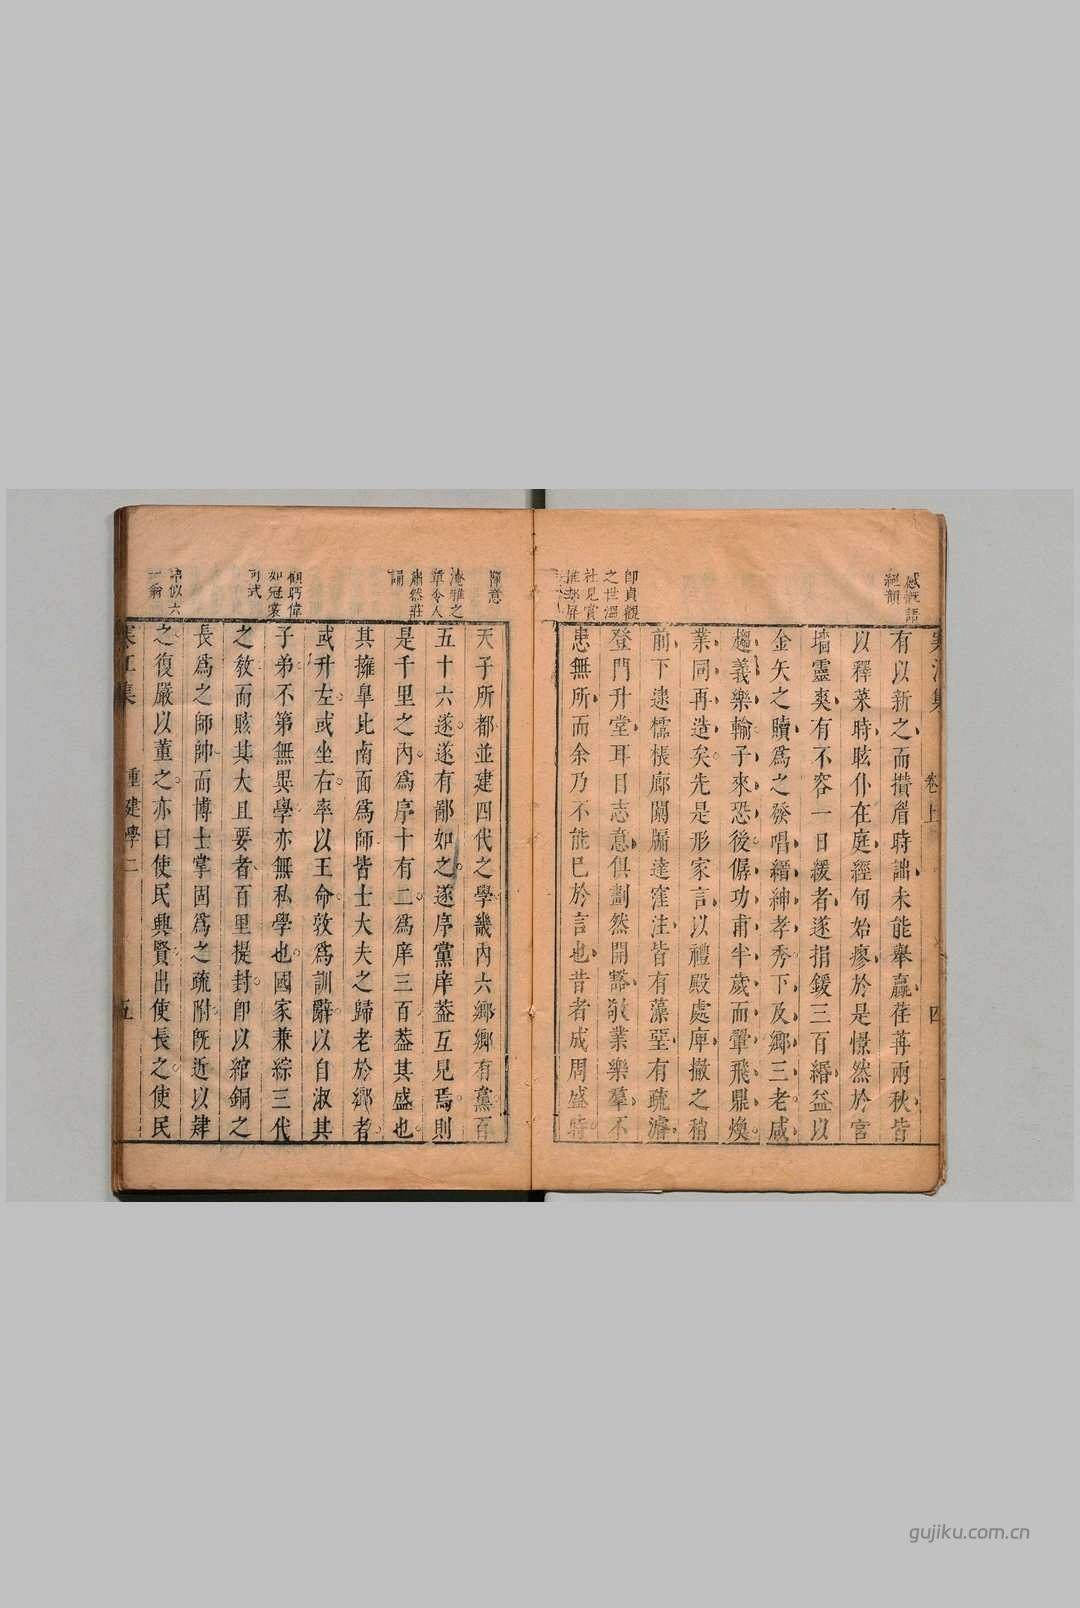 感慨語
絕韻
有以新之而攢眉時詘未能舉羸荏苒兩秋皆
以釋菜時眩仆在庭經旬始瘳於是憬然於宮
墻靈爽有不容一日緩者遂捐鍰三百緡益以
金矢之贖為之發唱縉紳孝秀下及鄉三老咸
趨義樂輸子來恐後僝功甫半歲而翬飛鼎煥
業同再造矣先是形家言以禮殿處庳撤之稍
前下逮櫺棖廊闑牖達窪注皆有藻堊有疏濬
登門升堂耳目志意俱劃然開豁敬業樂羣不
患無所而余乃不能已於言也昔者成周盛時
卽貞觀
之世溫
社見賞
卷上
四
天子所都並建四代之學畿內六鄉鄉有黨百
五十六遂遂有鄙如之遂序黨庠葢互見焉則
是千里之內為序十有二為庠三百葢其盛也
其擁臯比南面為師皆士大夫之歸老於鄉者
或升左或坐右率以王命敦為訓辭以自淑其
子弟不第無異學亦無私學也國家兼綜三代
之教而賅其大且要者百里提封卽以綰銅之
長為之師帥而博士掌固為之疏附旣近以肄
之復嚴以董之亦曰使民興賢出使長之使民
淹雅之
章令人
肅然莊
誦
顧眄偉
如冠裳
可式
重建學二
五
gujiku.com.cn